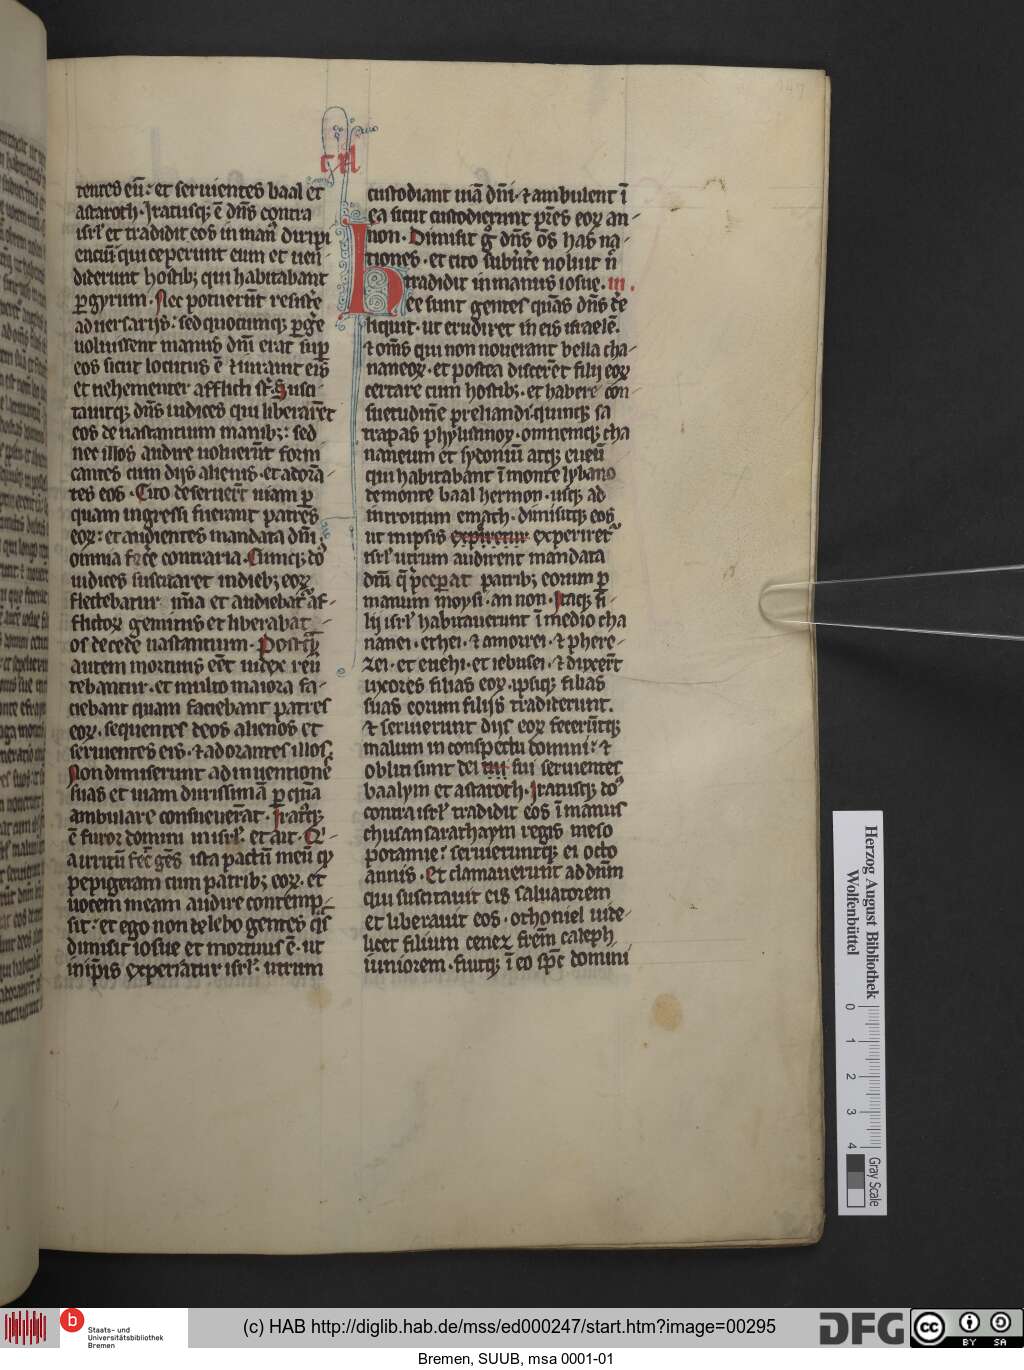 r xl
tentes eū: et seruientes baal et
astaroth. Iratusq; ē dn̄s contra
isrl̄ et tradidit eos in man̄ diripi
entiū qui ceperunt eum et uen̄
diderunt hostib; qui habitabant
ꝑ gyrum. Nec potuerūt resistˀe
aduersarijs: sed quocumq; ꝑgˀe
uoluissent manus dn̄i erat suꝑ
eos sicut locutus ē ⁊ iurauit eis
et uehementer afflicti st̄. Susci
tauitq; dn̄s iudices qui liberarēt
eos de uastantium manib;: sed
nec illos audire uoluerūt forni
cantes cum dijs alienis. et adorā
tes eos. Cito deseruerūt uiam ꝑ
quam ingressi fuerant patres
eoꝝ: et audientes mandata dn̄i
omnia fecˀe contraria. Cumq; dn̄s
iudices suscitaret in dieb; eoꝝ
flectebatur mīa et audiebat af
flictoꝝ gemitus et liberabat
os de cede uastantium. Postꝙ
autem mortuus eēt iudex reū
tebantur. et multo maiora fa
ciebant quam faciebant patres
eoꝝ. sequentes deos alienos et
seruientes eis. ⁊ adorantes illos.
Non dimiserunt adinuentiones
suas et uiam durissimā ꝑ quā
ambulare consueuerāt. Iratꝰq;
ē furor domini in isrl̄. et ait. Qꝰ
irritū fec̄ gēs ista pactū meū qd̄
pepigeram cum patrib; eoꝝ. et
uocem meam audire contemp
sit: et ego non delebo gentes q̄s
dimisit iosue et mortuus ē. ut
in ip̄is experiatur isrl̄: utrum
custodiant uiā dn̄i. ⁊ ambulent ī
ea sicut custodierunt pr̄es eoꝝ an
non. Dimisit g̊ dn̄s om̄s has na
tiones. et cito subūtˀe noluit n̄
tradidit in manus iosue. III.
Hee sunt gentes quas dn̄s de
liquit. ut erudiret in eis israelē.
⁊ om̄s qui non nouerant bella cha
naneoꝝ. et postea discerēt filij eoꝝ
certare cum hostib;. et habere con
suetudinē preliandi. quinq; sa
trapas phylistinoꝝ. omnemq; cha
naneum et sydoniū atq; eueū
qui habitabant ī monte lybano
de monte baal hermon. usq; ad
introitum emath. dimisitq; eos
ut in ipsis expiretur experiretˀ
isrl̄ utrum audirent mandata
dn̄i q̄ p̄ceꝑat patrib; eorum ꝑ
manum moysi. an non. Itaq; fi
lij isrl̄ habitauerunt ī medio cha
nanei. ethei. ⁊ amorrei. ⁊ phere
zei. et euehi. et iebusei. ⁊ duxerūt
uxores filias eoꝝ. ipsiq; filias
suas eorum filijs tradiderunt.
⁊ seruierunt dijs eoꝝ feceruntq;
malum in conspectu domini: ⁊
obliti sunt dei sui seruientes
baalym et astaroth. Iratusq; dn̄s
contra isrl̄ tradidit eos ī manus
chusan sarathaym regis meso
potamie: seruieruntq; ei octo
annis. Et clamauerunt ad dn̄m
qui suscitauit eis saluatorem
et liberauit eos. othoniel uide
licet filium cenez fr̄em caleph
iuniorem. fuitq; ī eo sp̄c domini
Herzog August Bibliothek
Wolfenbüttel
0 1 2 3 4
Gray Scale
b
Staats- und
Universitätsbibliothek
Bremen
(c) HAB http://diglib.hab.de/mss/ed000247/start.htm?image=00295
DFG
cc
BY SA
Bremen, SUUB, msa 0001-01